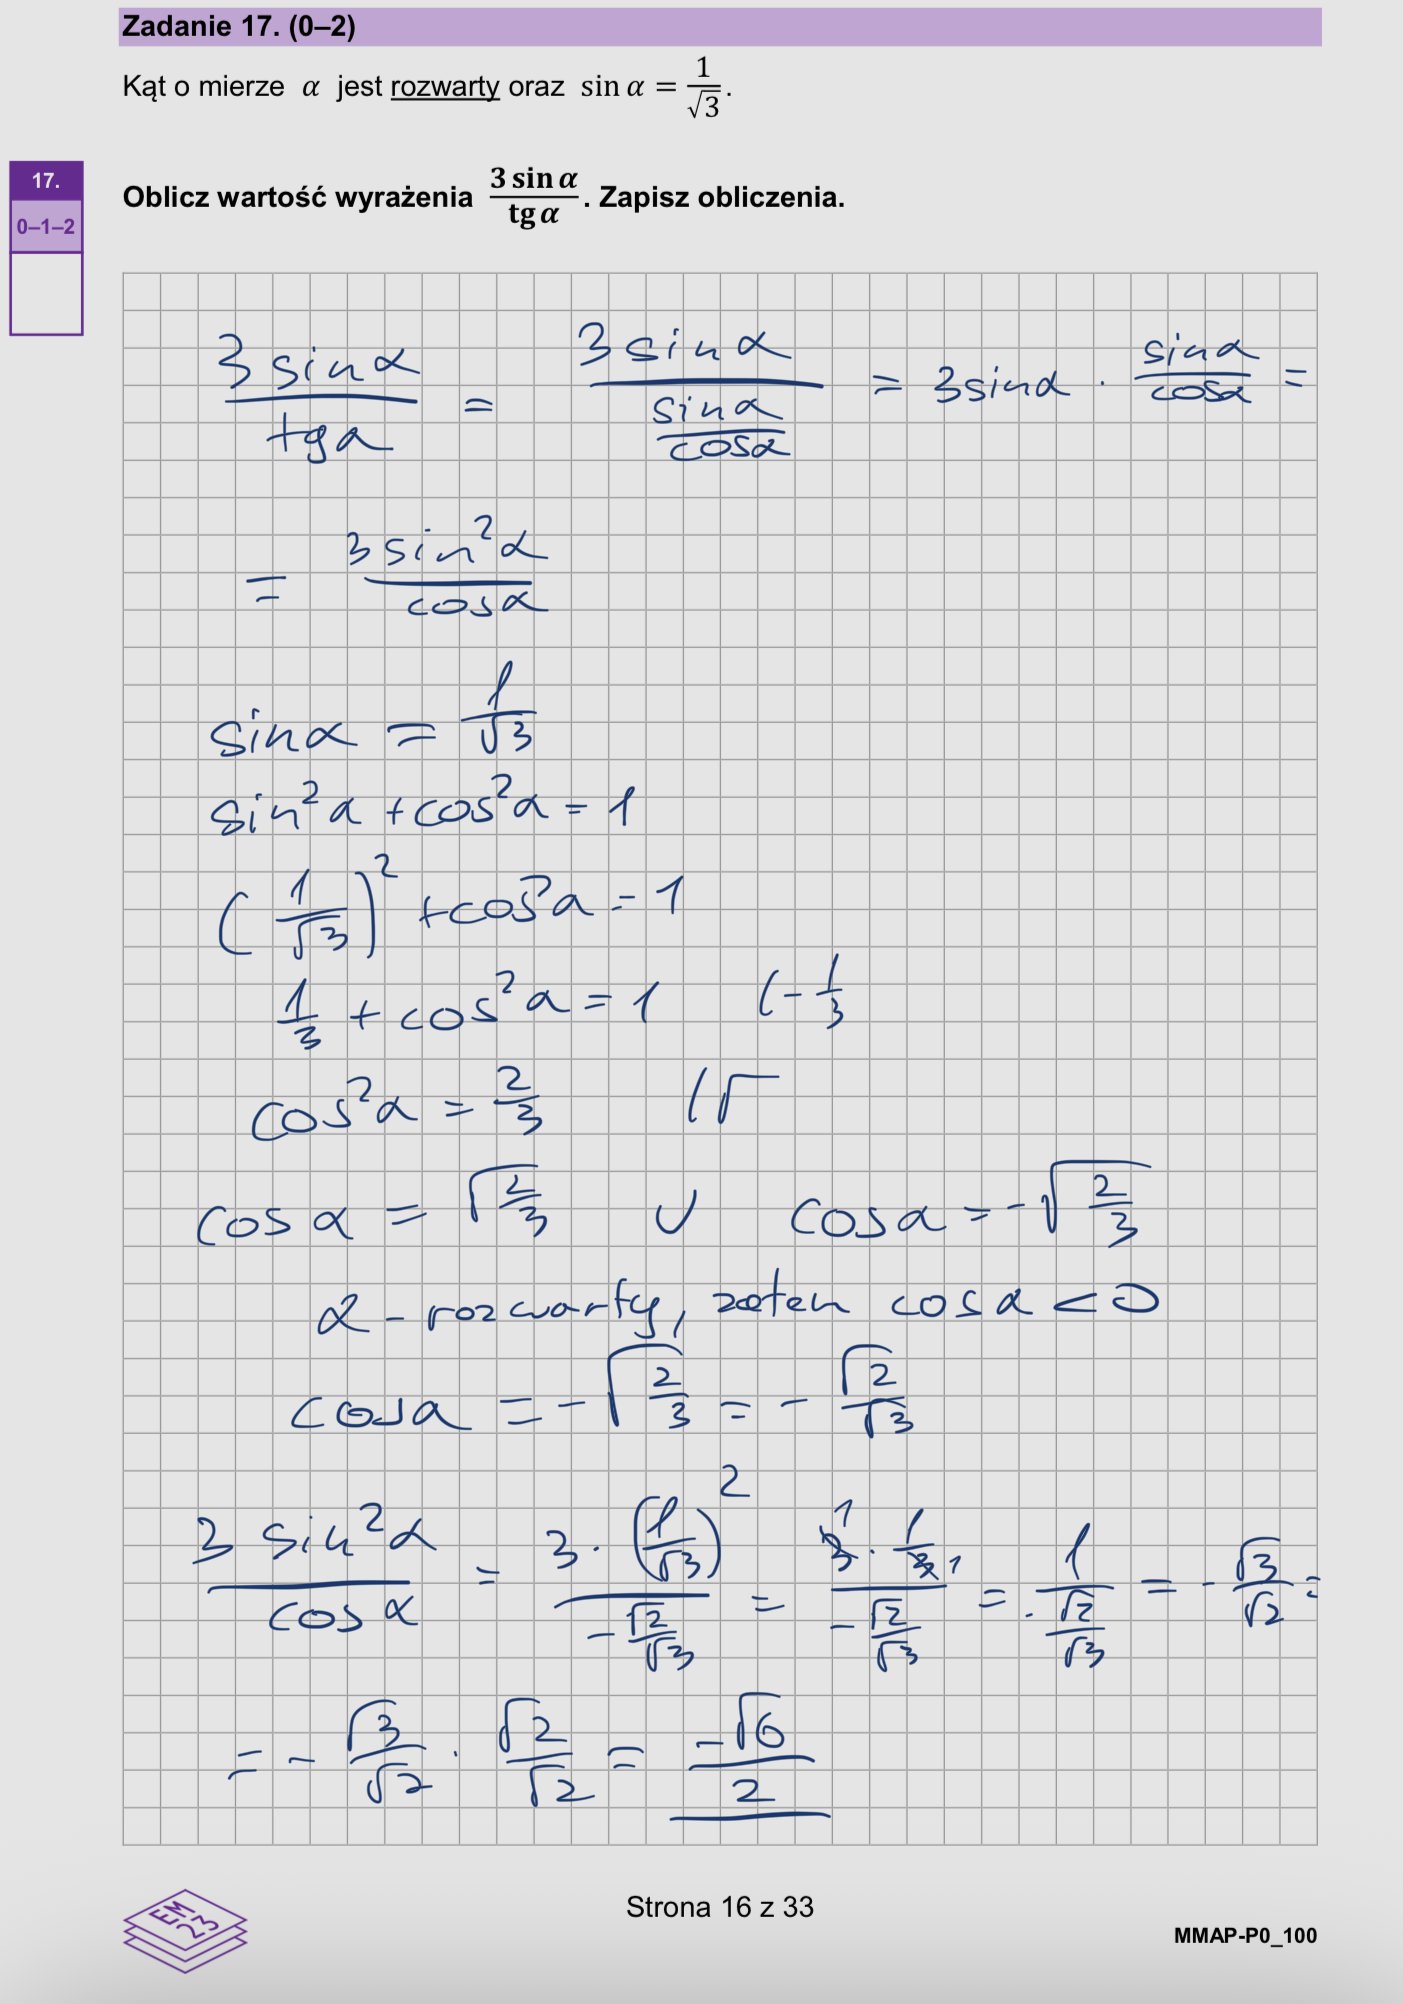 Zadanie 17. (0–2)
Kąt o mierze α jest rozwarty oraz sin α = 1/√3.
17.
0–1–2
Oblicz wartość wyrażenia 3 sin α / tg α. Zapisz obliczenia.
3 sin α / tg α = 3 sin α / (sin α / cos α) = 3 sin α · sin α / cos α =
= 3 sin²α / cos α
sin α = 1/√3
sin²α + cos²α = 1
(1/√3)² + cos²α = 1
1/3 + cos²α = 1 (- 1/3
cos²α = 2/3 (√
cos α = √(2/3) ∪ cos α = -√(2/3)
α - rozwarty, zatem cos α < 0
cos α = -√(2/3) = - √2/√3
3 sin²α / cos α = 3 · (1/√3)² / (-√2/√3) = 3 1 · 1/3 1 / (-√2/√3) = 1 / (-√2/√3) = - √3/√2 =
= - √3/√2 · √2/√2 = -√6 / 2
EM
23
Strona 16 z 33
MMAP-P0_100